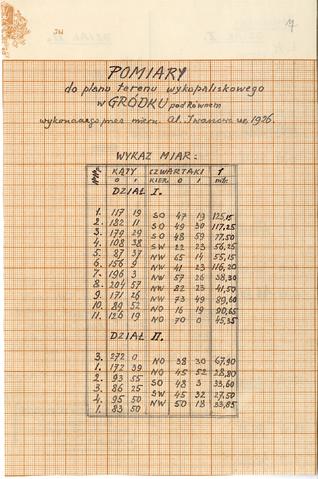 JW
7
POMIARY
do planu terenu wykopaliskowego
w GRÓDKU pod Równem
wykonanego przez miern. Al. Iwanowa w r. 1926
WYKAZ MIAR:
KĄTY CZWARTAKI
0 1 KIER. 0 1
DZIAŁ I.
1. 117 19
SO 47 19 125,15
2. 182 11
SO 49 30 117,25
3. 179 29
SO 48 59 77,50
4. 108 38
SW 22 23 56,25
5. 87 37
NW 65 14 55,15
6. 156 9
NW 41 23 116,20
7. 196 3
NW 57 26 38,30
8. 204 57
NW 82 23 41,50
9. 171 26
NW 73 49 89,60
10. 89 52
NO 16 19 90,65
11. 126 19
NO 70 0 45,35
DZIAŁ II.
3. 272 0
NO 38 30 67,90
1. 172 39
NO 45 52 28,80
2. 93 55
SO 48 3 33,60
3. 86 25
SW 45 32 27,50
4. 95 50
NW 50 18 33,85
1. 83 50